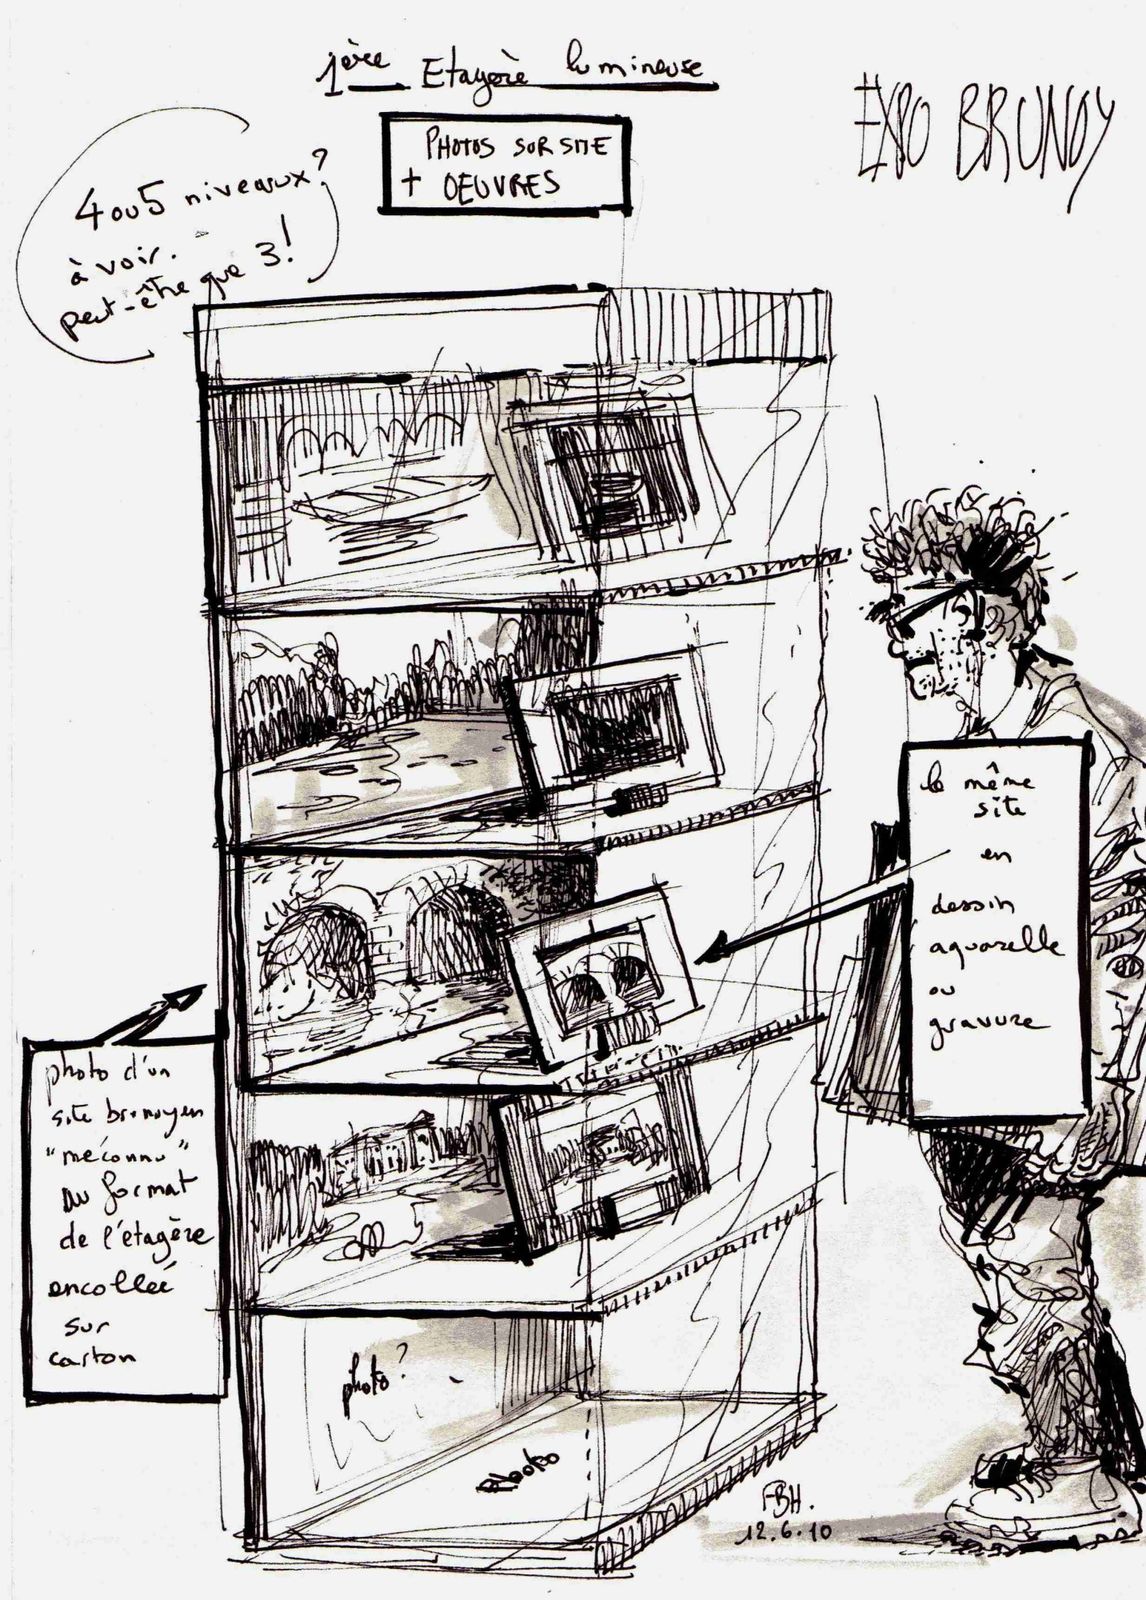 1ère Etagère lumineuse
EXPO BRUNOY
PHOTOS SUR SITE
+ OEUVRES
4 ou 5 niveaux?
à voir.
peut-être que 3!
le même
site
en
dessin
aquarelle
ou
gravure
photo d'un
site brunoyen
"méconnu"
au format
de l'étagère
encollée
sur
carton
photo?
Photo
FBH.
12.6.10